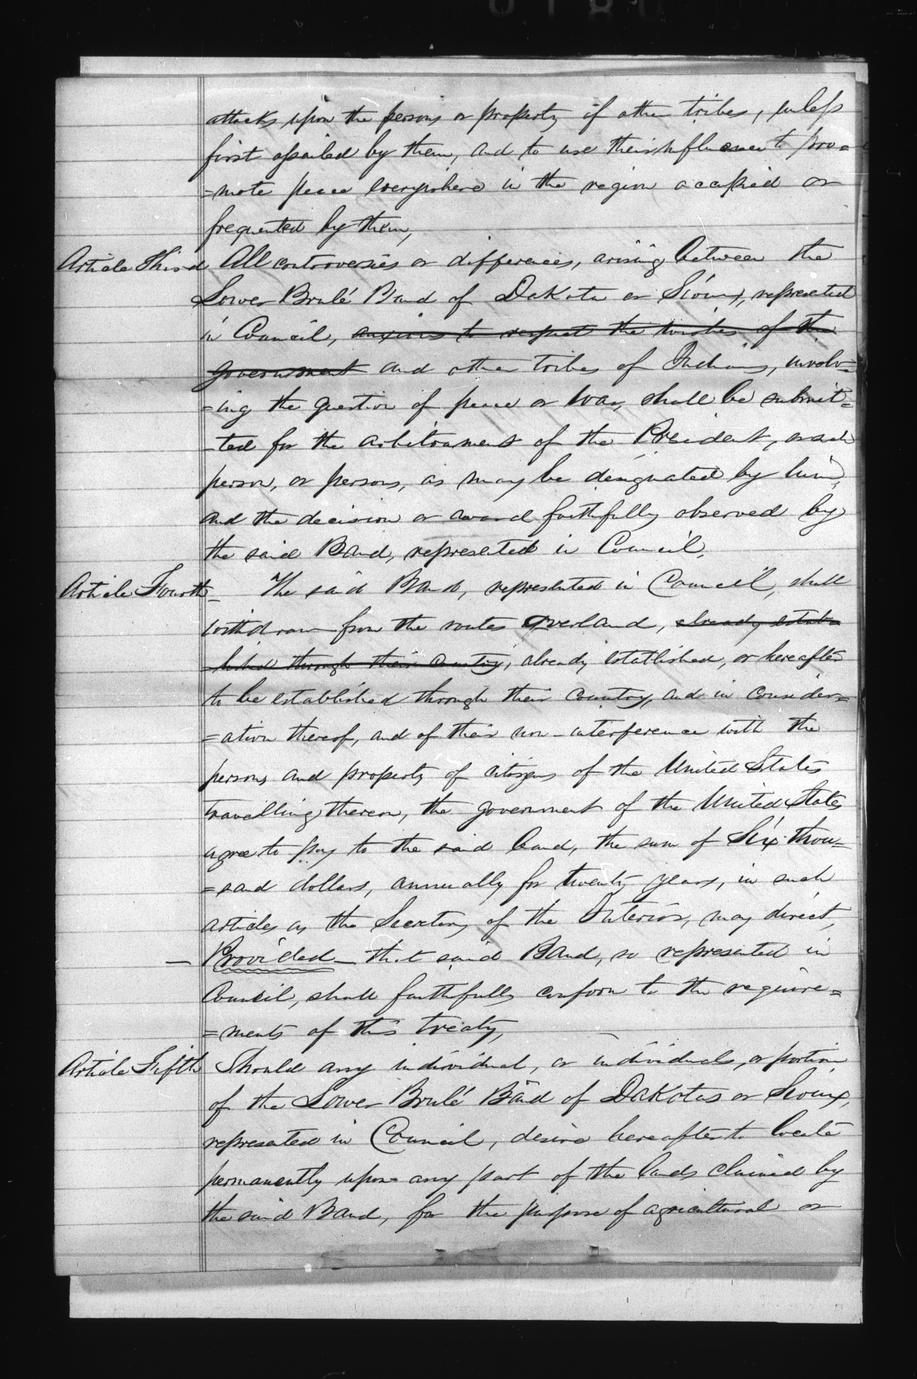 attacks upon the persons or property of other tribes, unless
first assailed by them, and to use their influence to pro=
=mote peace everywhere in the region occupied or
frequented by them,
Article Third All controversies or differences, arising between the
Lower Brulé Band of Dakota or Sioux, represented
in Council, anxious to respect the wishes of the
government and other tribes of Indians, involv=
=ing the question of peace or war, shall be submit=
=ted for the arbitrament of the President, or such
person, or persons, as may be designated by him,
and the decision or award faithfully observed by
the said Band, represented in Council.
Article Fourth – The said Band, represented in Council, shall
withdraw from the routes overland, already estab=
lished through their country, already established, or hereafter
to be established through their country, and in consider=
=ation thereof, and of their non-interference with the
persons and property of citizens of the United States
travelling thereon, the government of the United States
agree to pay to the said band, the sum of Six thou=
=sand dollars, annually for twenty years, in such
articles as the Secretary of the Interior, may direct,
– Provided – that said Band, so represented in
Council, shall faithfully conform to the require=
=ments of this treaty,
Article Fifth Should any individual, or individuals, or portion
of the Lower Brulé Band of Dakotas or Sioux,
represented in Council, desire hereafter to locate
permanently upon any part of the lands claimed by
the said Band, for the purpose of agricultural or